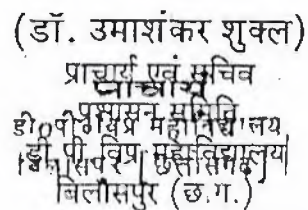 (डॉ. उमाशंकर शुक्ल)
प्राचार्य एवं सचिव
प्राचार्य
प्रशासन समिति
डी.पी. विप्र महाविद्यालय
डी. पी. विप्र महाविद्यालय
बिलासपुर (छत्तीसगढ़)
बिलासपुर (छ.ग.)